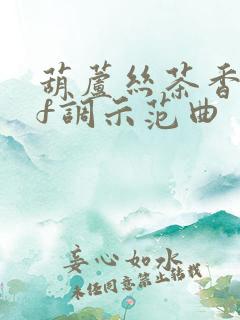 葫蘆絲茶香
f調示范曲
妄心如水
未经同意禁止转载